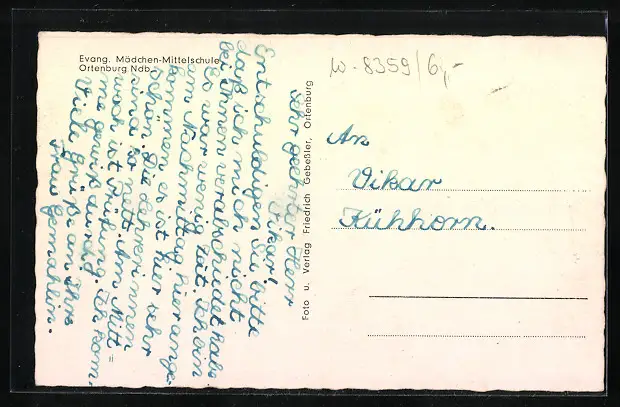 Evang. Mädchen-Mittelschule
Ortenburg Ndb.
W-8359/6,-
Sehr geehrter Herr
Vikar!
Entschuldigen Sie bitte
daß ich mich nicht
bei Ihnen verabschiedet habe
Es war wenig Zeit. Ich bin
am Nachmittag hier ange-
kommen, es ist hier sehr
schön. Die Lehrerinnen
sind so nett. Am Mitt=
woch ist Prüfung. Ich kom-
me gewiß durch.
Viele grüße an Ihre
Frau Gemahlin.
Foto u. Verlag Friedrich Gebeßler, Ortenburg
An
Vikar
Kühhorn.